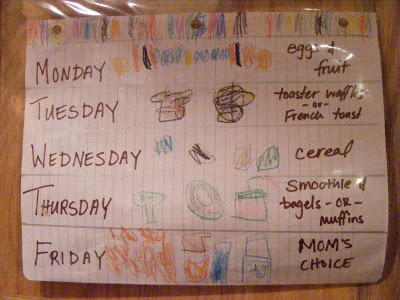 MONDAY
eggs &
fruit
TUESDAY
toaster waffles
-or-
French toast
WEDNESDAY
cereal
THURSDAY
Smoothie &
bagels -OR-
muffins
FRIDAY
MOM'S
CHOICE